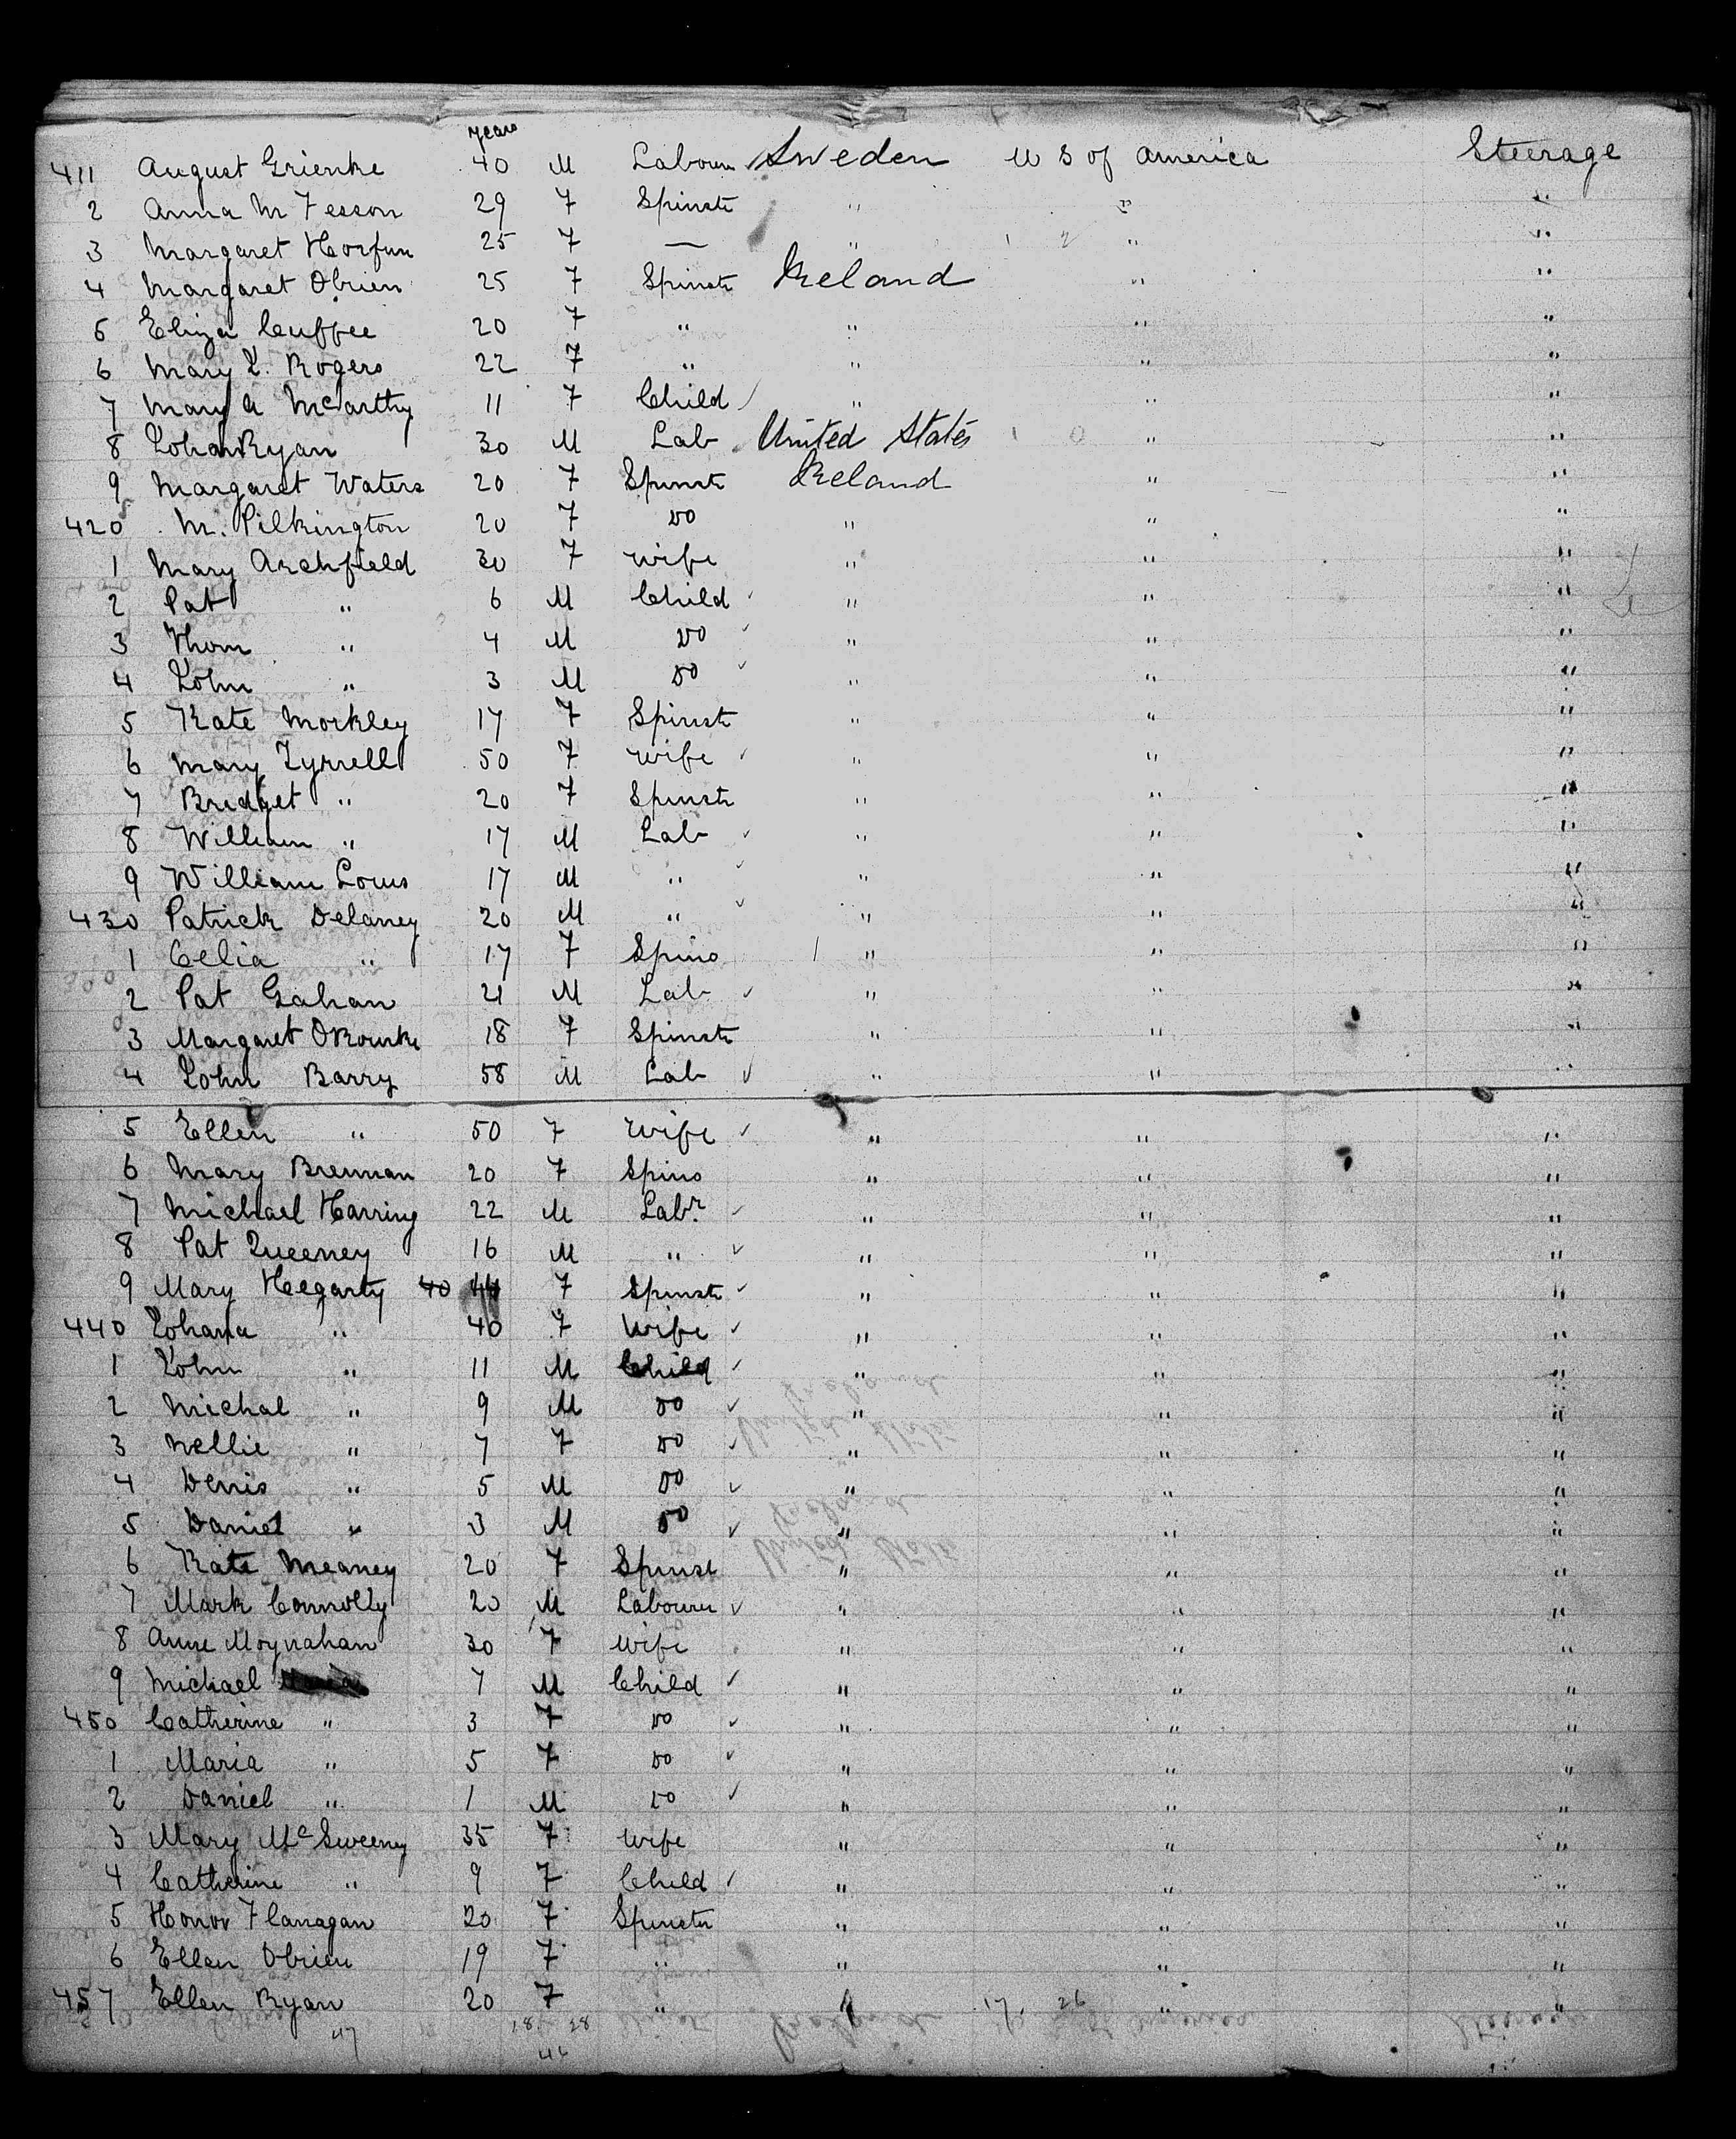 years
411 August Grienke 40 M Labourer Sweden U S of America Steerage
2 Anna M Fesson 29 F Spinstr " " "
3 Margaret Horfun 25 F — " " "
4 Margaret Obrien 25 F Spinstr Ireland " "
5 Eliza Cuffee 20 F " " " "
6 Mary J. Rogers 22 F " " " "
7 Mary A McCarthy 11 F Child " " "
8 John Ryan 30 M Lab United States " "
9 Margaret Waters 20 F Spinstr Ireland " "
420 M. Pilkington 20 F Do " " "
1 Mary Archfield 30 F Wife " " "
2 Pat " 6 M Child " " "
3 Thom " 4 M Do " " "
4 John " 3 M Do " " "
5 Kate Morkley 17 F Spinstr " " "
6 Mary Tyrrell 50 F Wife " " "
7 Bridget " 20 F Spinstr " " "
8 William " 17 M Lab " " "
9 William Lows 17 M " " " "
430 Patrick Delaney 20 M " " " "
1 Celia " 17 F Spins " " "
2 Pat Gahan 21 M Lab " " "
3 Margaret ORourke 18 F Spinstr " " "
4 John Barry 58 M Lab " " "
5 Ellen " 50 F Wife " " "
6 Mary Brennan 20 F Spins " " "
7 Michael Harring 22 M Labr " " "
8 Pat Queeney 16 M " " " "
9 Mary Hegarty 40 44 F Spinstr " " "
440 Johana " 40 F Wife " " "
1 John " 11 M Child " " "
2 Michal " 9 M Do " " "
3 Nellie " 7 F Do " " "
4 Denis " 5 M Do " " "
5 Daniel " 3 M Do " " "
6 Kate Meaney 20 F Spinst " " "
7 Mark Connolly 20 M Labourer " " "
8 Anne Moynahan 30 F Wife " " "
9 Michael 7 M Child " " "
450 Catherine " 3 F Do " " "
1 Maria " 5 F Do " " "
2 Daniel " 1 M Do " " "
3 Mary McSweeny 35 F Wife " " "
4 Catherine " 9 F Child " " "
5 Honor Flanagan 20 F Spinster " " "
6 Ellen Obrien 19 F " " " "
457 Ellen Ryan 20 F " " 17. 26 " "
47 18 28
46